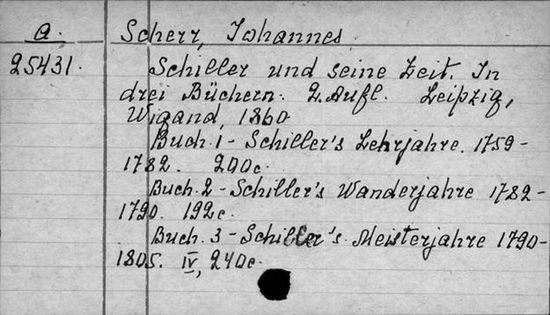 a. Scherr, Johannes.
25431. Schiller und seine Zeit. In
drei Büchern. 2. Aufl. Leipzig,
Wigand, 1860
Buch. 1 - Schiller's Lehrjahre. 1759-
1782. 200c.
Buch. 2 - Schiller's Wanderjahre 1782-
1790. 192c.
Buch. 3 - Schiller's Meisterjahre 1790-
1805. IV, 240c.